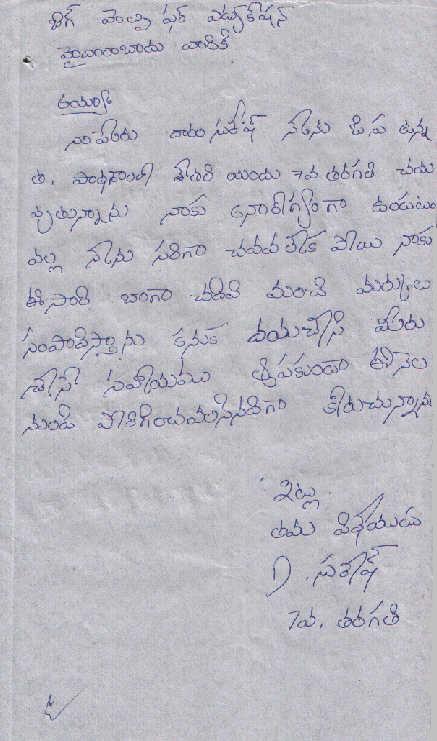 దిగ్ హెల్ప్ ఫర్ ఎడ్యుకేషన్
హైదరాబాదు వారికి
అయ్యా
నా పేరు దారం సురేష్ నేను జి.ప ఉన్న
త. పాఠశాలలో శేరి యందు 7వ తరగతి చదు
వుతున్నాను నాకు అనారోగ్యంగా ఉండుటం
వల్ల నేను సరిగా చదవ లేక పోయి నాకు
ఈసారి బాగా చదివి మంచి మర్కులు
సంపాదిస్తాను కనుక దయచేసి మీరు
చేసే సహాయము ఆపకుండా ఈ నెల
నుండి పోడిగించవలసినదిగా కోరుచున్నాను
ఇట్లు
తమ విధేయుడు
D. సురేష్
7వ. తరగతి